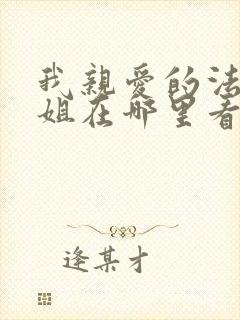 我親愛的法
姐在哪里看
逢某才